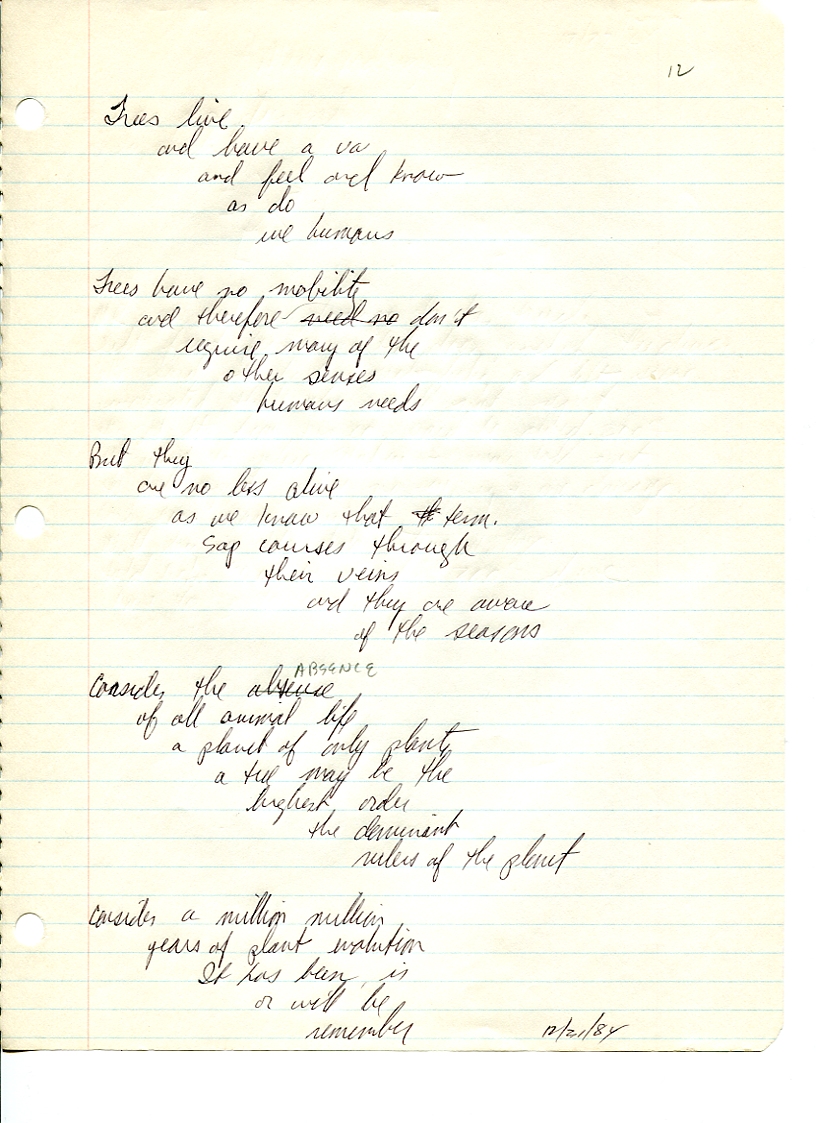 12
Trees live
and have a va
and feel and know
as do
we humans
Trees have no mobility
and therefore need no don't
require many of the
other senses
humans needs
But they
are no less alive
as we know that th term.
Sap courses through
their veins
and they are aware
of the seasons
ABSENCE
Consider the abscence
of all animal life
a planet of only plants
a tree may be the
highest order
the dominant
rulers of the planet
Consider a million million
years of plant evolution
It has been, is
or will be
remember
12/21/84